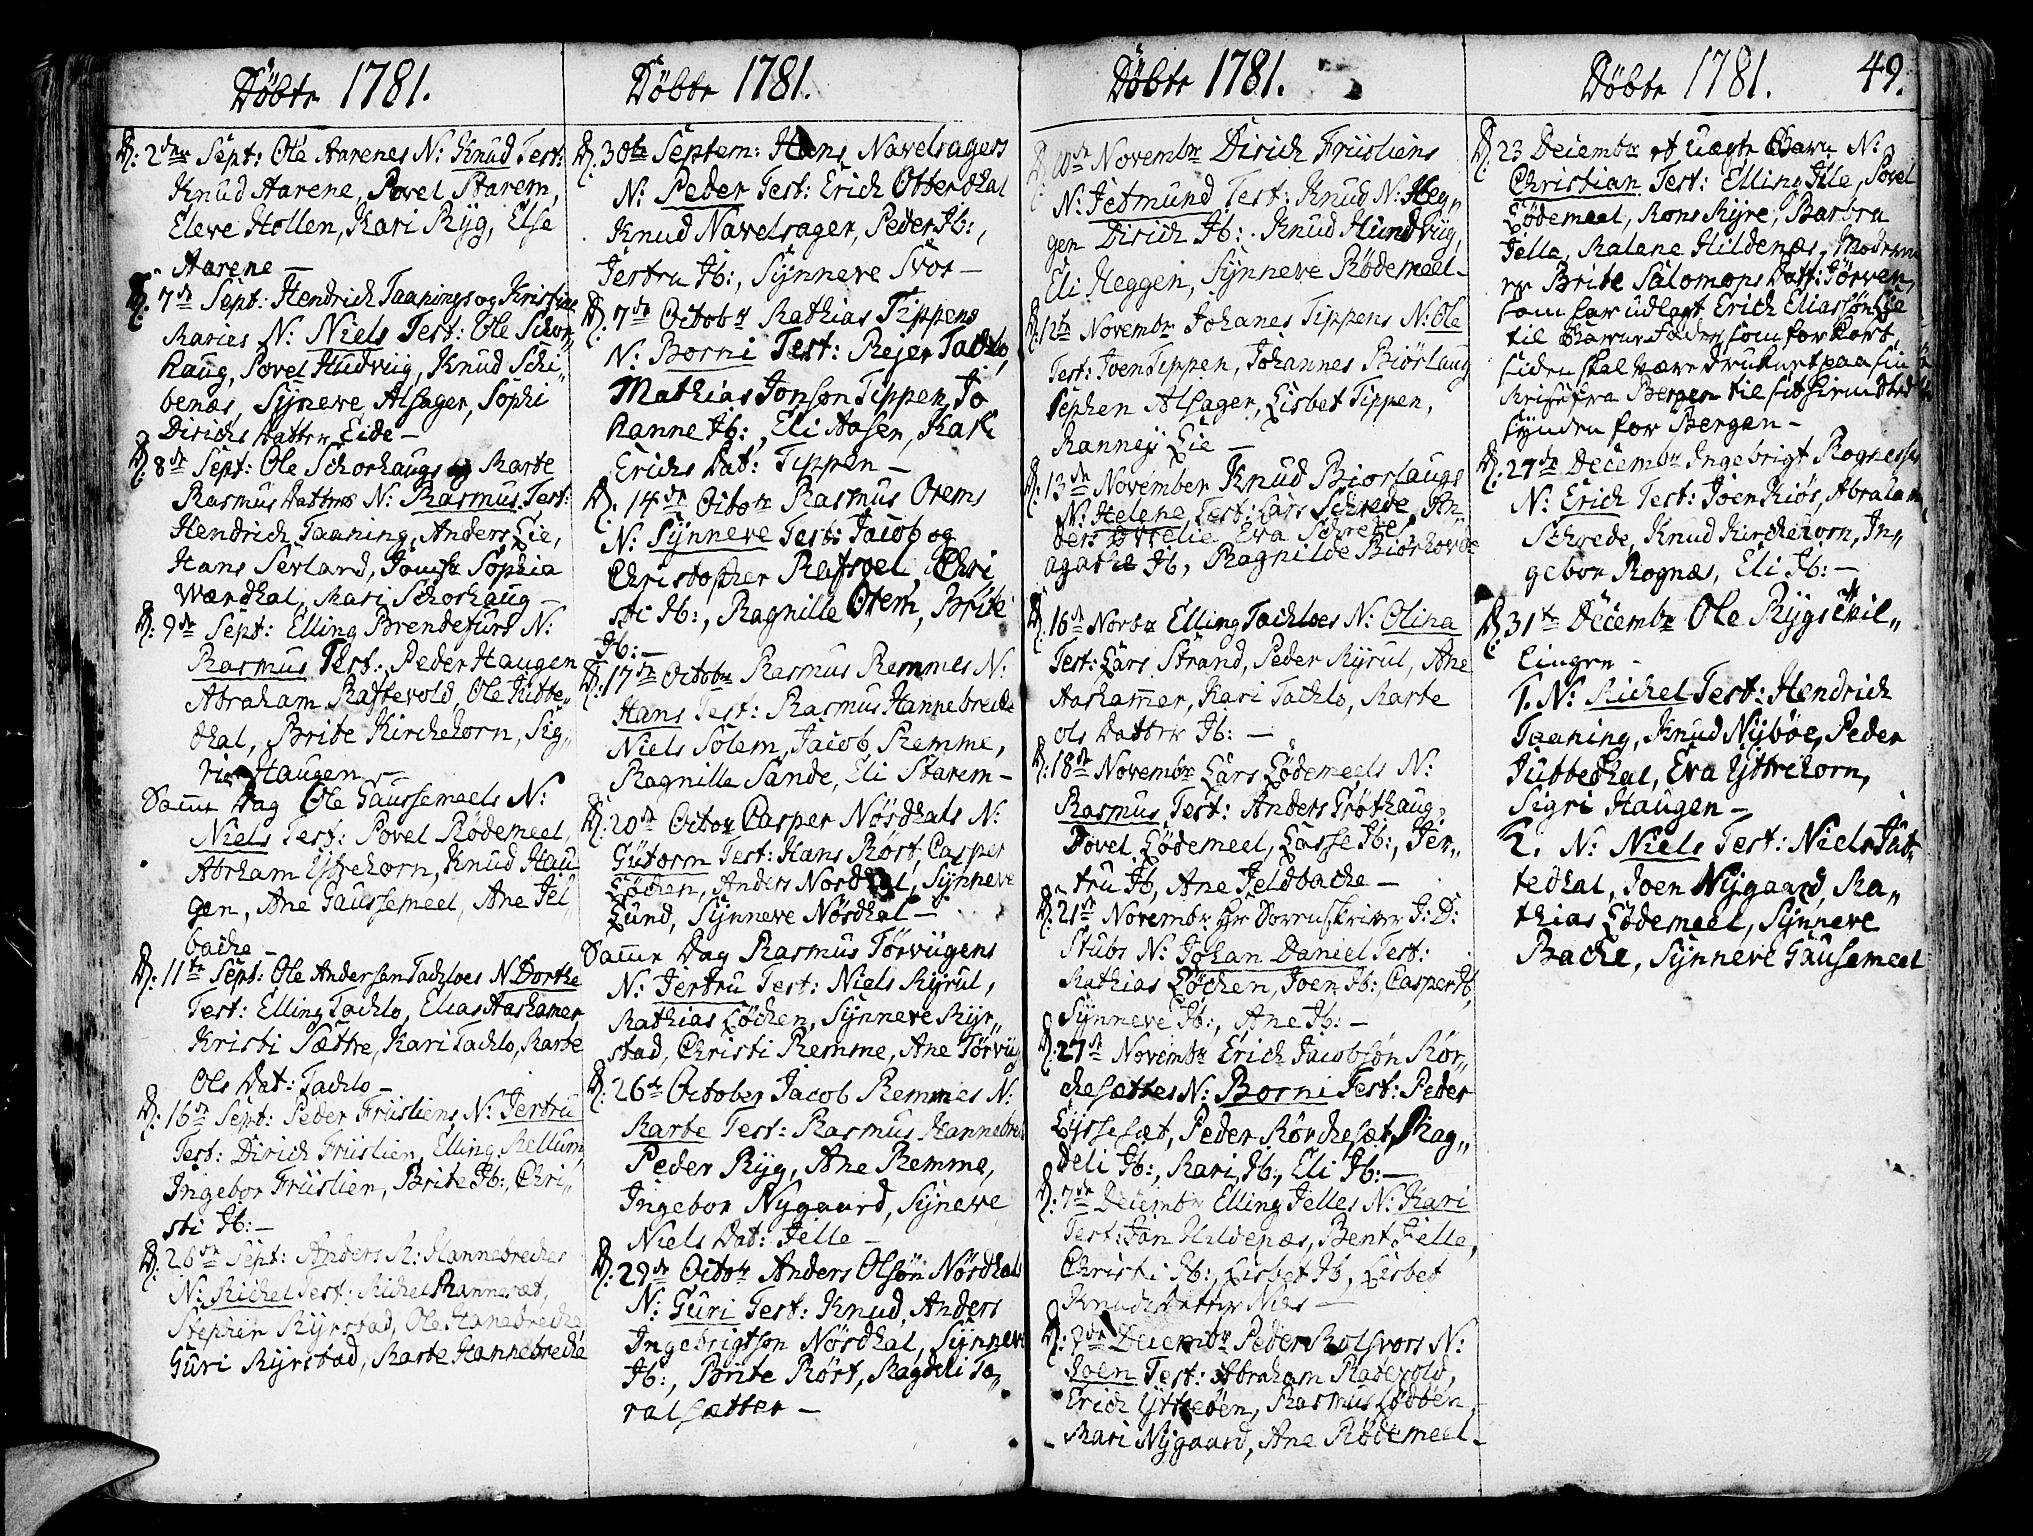 Döbte 1781.
D: 2den Sept: Ole Aarenes N: Knud Test:
Knud Aarene, Povel Starem,
Eleve Hollen, Kari Ryg, Else
Aarene —
D: 7de Sept: Hendrich Taanings og Kristine
Maries N: Niels Test: Ole Schor-
haug, Povel Hudviig, Knud Schi-
benæs, Synneve Alsager, Sophi
Dirichs Datter Eide —
D: 8de Sept: Ole Schorhaugs og Marte
Rasmus Datters N: Rasmus Test:
Hendrich Taaning, Anders Lie,
Hans Sevland, Sophia
Wærdhal, Mari Schorhaug —
D: 9de Sept: Elling Brendefurs N:
Rasmus Test: Peder Haugen
Abraham Raftevold, Ole Jutte-
dhal, Brite Kirchehorn, Sig-
ri Haugen —
Samme Dag Ole Gaussemeels N:
Niels Test: Povel Rödemeel,
Abrham Yttrehorn, Knud Hau-
gen, Ane Gaussemeel, Ane Fel-
bache —
D: 11te Sept: Ole Andersen Tachloes N: Dorthe
Test: Elling Tachlo, Elias Aaskamer,
Kristi Sættre, Kari Tachlo, Marte
Ols Dat: Tachlo —
D: 16de Sept: Peder Friisliens N: Jertru
Test: Dirich Friislien, Elling Mellum,
Ingebor Friislien, Brite Ib:, Chri-
sti Ib: —
D: 26de Sept: Anders M: Hannebreches
N: Michel Test: Michel Mannesæt,
Stephen Myrstad, Ole Hanebreche
Guri Myrstad, Marte Hannebreche
Döbte 1781.
D: 30te Septem: Hans Navelsagers
N: Peder Test: Erich Otterdhal
Knud Navelsager, Peder Ib:,
Jertru Ib:, Synneve Svor —
D: 7de Octobr Mathias Tippens
N: Borni Test: Rejer Tachlo,
Mathias Jonson Tippen, Jo
hanne Ib:, Eli Aasen, Kari
Erichs Dat: Tippen —
D: 14de Octobr Rasmus Orems
N: Synneve Test: Jacob og
Christopher Rafsvel, Chri
sti Ib:, Ragnille Orem, Brite
Ib: —
D: 17de Octobr Rasmus Remmes N:
Hans Test: Rasmus Hannebreche
Niels Solem, Jacob Remme,
Ragnille Sande, Eli Starem —
D: 20de Octobr Casper Nösdhals N:
Gutorm Test: Hans Mört, Casper
Löchen, Anders Nordhal, Synneve
Lund, Synneve Nösdhal —
Samme Dag Rasmus Törvugens
N: Jertru Test: Niels Myrul,
Mathias Löchen, Synneve Myr-
stad, Christi Remme, Ane Törvug
D: 26de October Jacob Remmes N:
Marte Test: Rasmus Hannebrech
Peder Ryg, Ane Remme,
Ingebor Nygaard, Synneve
Niels Dat: Jelle —
D: 29de Octobr Anders Olsön Nösdhals
N: Guri Test: Knud, Anders
Ingebrigtson Nösdhal, Synneve
Ib:, Brite Mört, Ragdeli To-
ralsætter —
Döbte 1781.
D: Novembr Dirich Friisliens
N: Jetmund Test: Knud N: Heg-
gen Dirich Ib: Knud Hundviig,
Eli Heggen, Synneve Rödemeel —
D: 12te Novembr Johanes Tippens N: Ole
Test: Joen Tippen, Johannes Biörlaug
Sephen Alsager, Lisbet Tippen,
Ranney Lie —
D: 13de November Knud Biorlaugs
N: Helene Test: Lars Schrede, An-
ders Eva Schrede,
Ib, Ragnilde Biorhovde
D: 16de Novbr Elling Tachloes N: Olina
Test: Lars Strand, Peder Myrul, Ane
Aaskamer, Kari Tachlo, Marte
Ols Datter Ib: —
D: 18de Novembr Lars Lödemeels N:
Rasmus Test: Anders Tröthaug,
Povel Lödemeel, Lasse Ib:, Jer-
tru Ib, Ane Feldbache —
D: 21de Novembr Hr Sorenskriver J: D:
Stubs N: Johan Daniel Test:
Mathias Löchen, Joen Ib:, Casper Ib,
Synneve Ib:, Ane Ib: —
D: 27de Novembr Erich Jacobsön Mör-
chesættes N: Borni Test: Peder
Lyssesæt, Peder Mörchesæt, Rag-
deli Ib:, Mari Ib:, Eli Ib: —
D: 7de Decembr Elling Jelles N: Kari
Test: Jan Hildenæs, Bent Jelle,
Christi Ib:, Lisbet Ib, Lisbet
Knuds Datter Nies —
D: 9de Decembr Peder Molsvors N:
Joen Test: Abraham Ratevold,
Erich Yttreöen, Rasmus Lödöen,
Mari Nygaard, Ane Rödemeel —
Döbte 1781. 49.
D: 23 Decembr et uægte Barn N:
Christian Test: Elling Jile, Povel
Lödemeel, Mons Myre, Barbru
Jelle, Malene Hildenæs, Moderen
er Brite Salomons Datt: Törven,
som har udlagt Erich Eliassön Lie
til Barne Fader, som for kort
siden skal være druknet paa sin
Reise fra Bergen til sit hiemsted
synden for Bergen —
D: 27de Decembr Ingebrigt Rognesses
N: Erich Test: Joen Miös, Abraham
Schrede, Knud Kirchehorn, In-
gebor Rognæs, Eli Ib: —
D: 31te Decembr Ole Rygs Tvil-
linger —
1. N: Michel Test: Hendrich
Taaning, Knud Nyböe, Peder
Juttedhal, Eva Yttrehorn,
Sigri Haugen —
2. N: Niels Test: Niels Jut-
tedhal, Joen Nygaard, Ma-
thias Lödemeel, Synneve
Bache, Synneve Gausemeel